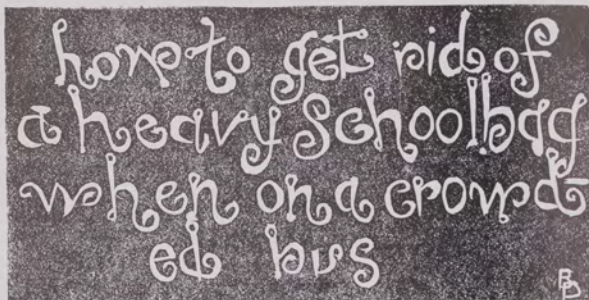 how to get rid of
a heavy schoolbag
when on a crowd-
ed bus